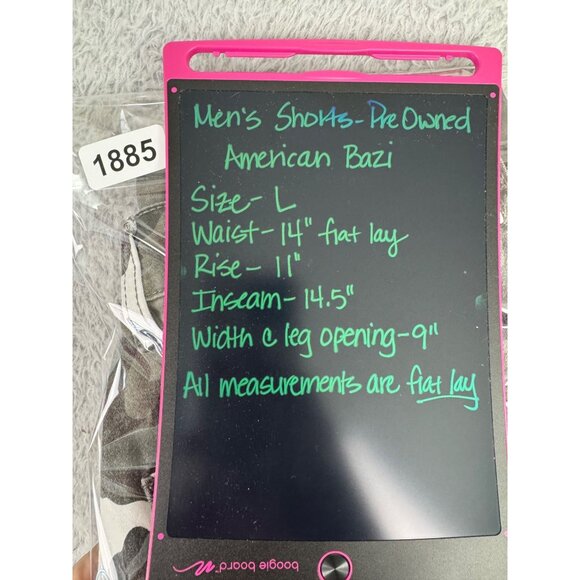 1885
Men's Shorts - Pre Owned
American Bazi
Size - L
Waist - 14" flat lay
Rise - 11"
Inseam - 14.5"
Width @ leg opening - 9"
All measurements are flat lay
boogie board